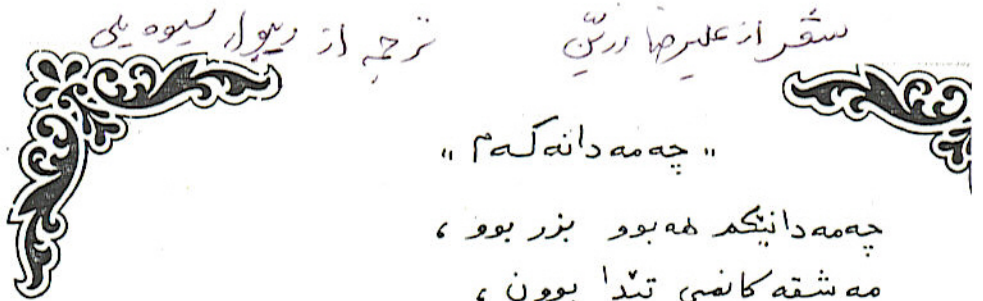 شعر از علیرضا زرین ترجمه از ریبوار سیوه یلی
" چەمەدانەکەم "
چەمەدانێکم هەبوو بزر بوو ،
مەشقەکانمی تێدا بوون ،